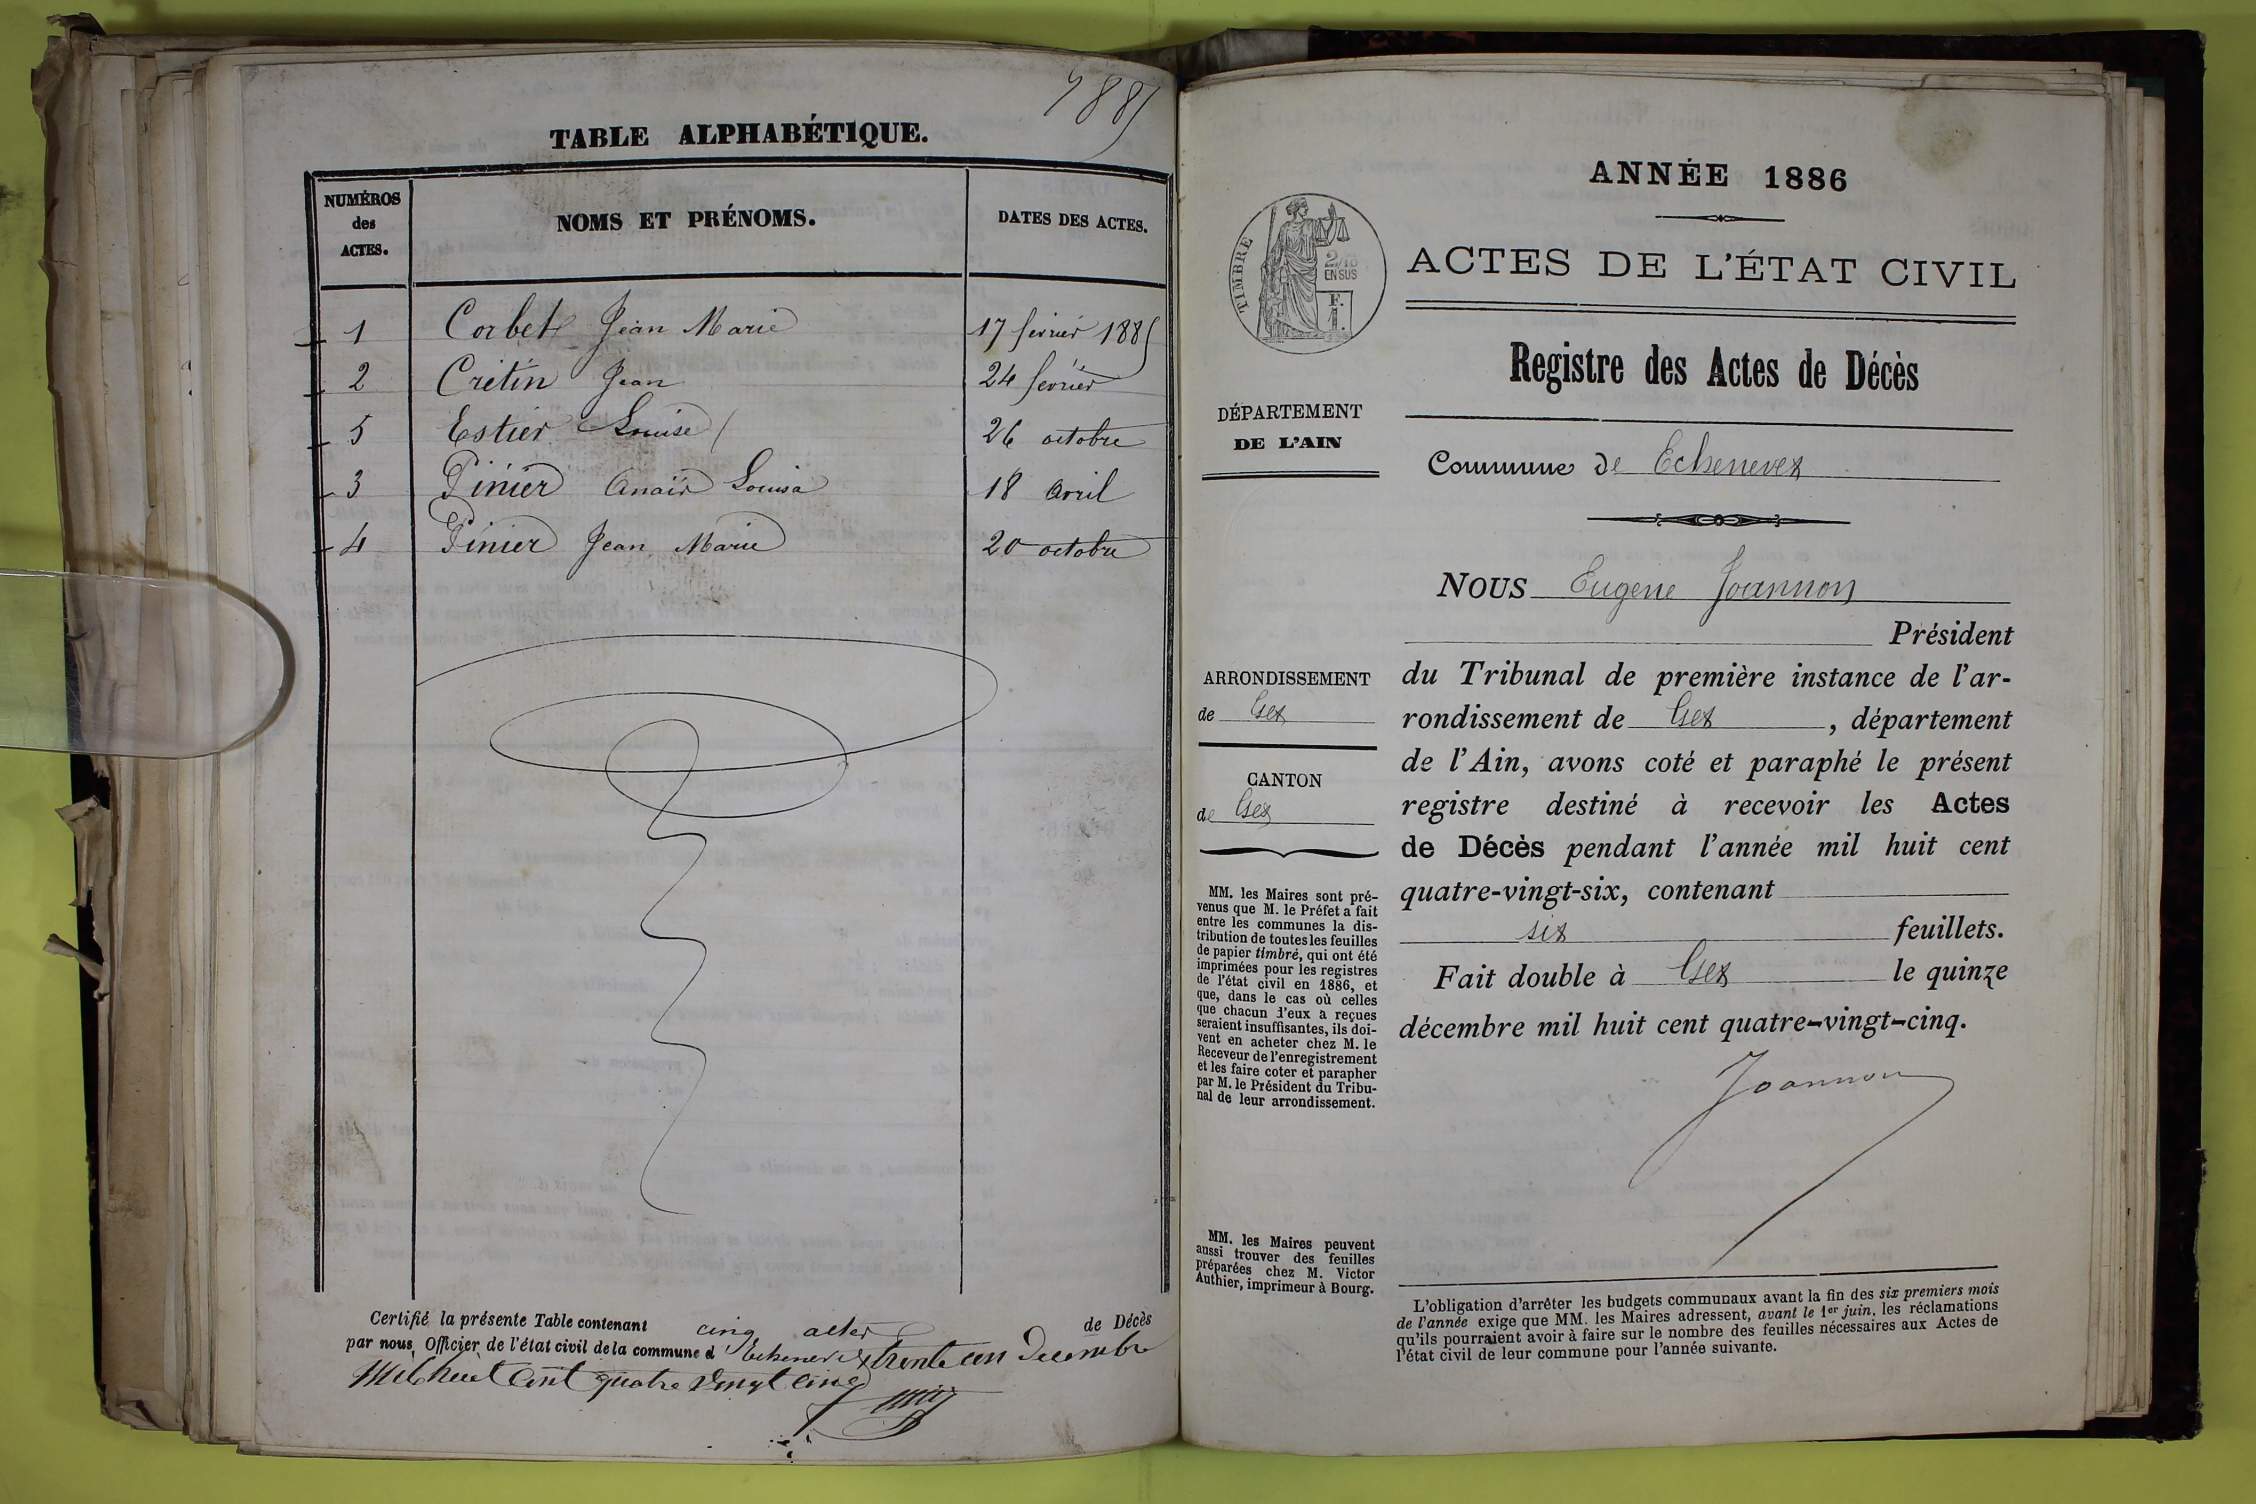 1885
TABLE ALPHABÉTIQUE.
NUMÉROS des ACTES. NOMS ET PRÉNOMS. DATES DES ACTES.
1 Corbet Jean Marie 17 février 1885
2 Crétin Jean 24 février
5 Estier Louise 26 octobre
3 Pinier Anaïs Louisa 18 avril
4 Pinier Jean Marie 20 octobre
Certifié la présente Table contenant cinq actes de Décès
par nous, Officier de l'état civil de la commune d'Echenevex trente un Decembre
Mil huit Cent quatre vingt cinq
ANNÉE 1886
TIMBRE
2/10
EN SUS
ACTES DE L'ÉTAT CIVIL
Registre des Actes de Décès
DÉPARTEMENT
DE L'AIN
Commune de Echenevex
NOUS Eugène Joannon
Président
ARRONDISSEMENT
de Gex
CANTON
de Gex
du Tribunal de première instance de l'ar-
rondissement de Gex, département
de l'Ain, avons coté et paraphé le présent
registre destiné à recevoir les Actes
de Décès pendant l'année mil huit cent
quatre-vingt-six, contenant
six feuillets.
Fait double à Gex le quinze
décembre mil huit cent quatre-vingt-cinq.
Joannon
MM. les Maires sont pré-
venus que M. le Préfet a fait
entre les communes la dis-
tribution de toutes les feuilles
de papier timbré, qui ont été
imprimées pour les registres
de l'état civil en 1886, et
que, dans le cas où celles
que chacun d'eux a reçues
seraient insuffisantes, ils doi-
vent en acheter chez M. le
Receveur de l'enregistrement
et les faire coter et parapher
par M. le Président du Tribu-
nal de leur arrondissement.
MM. les Maires peuvent
aussi trouver des feuilles
préparées chez M. Victor
Authier, imprimeur à Bourg.
L'obligation d'arrêter les budgets communaux avant la fin des six premiers mois
de l'année exige que MM. les Maires adressent, avant le 1er juin, les réclamations
qu'ils pourraient avoir à faire sur le nombre des feuilles nécessaires aux Actes de
l'état civil de leur commune pour l'année suivante.